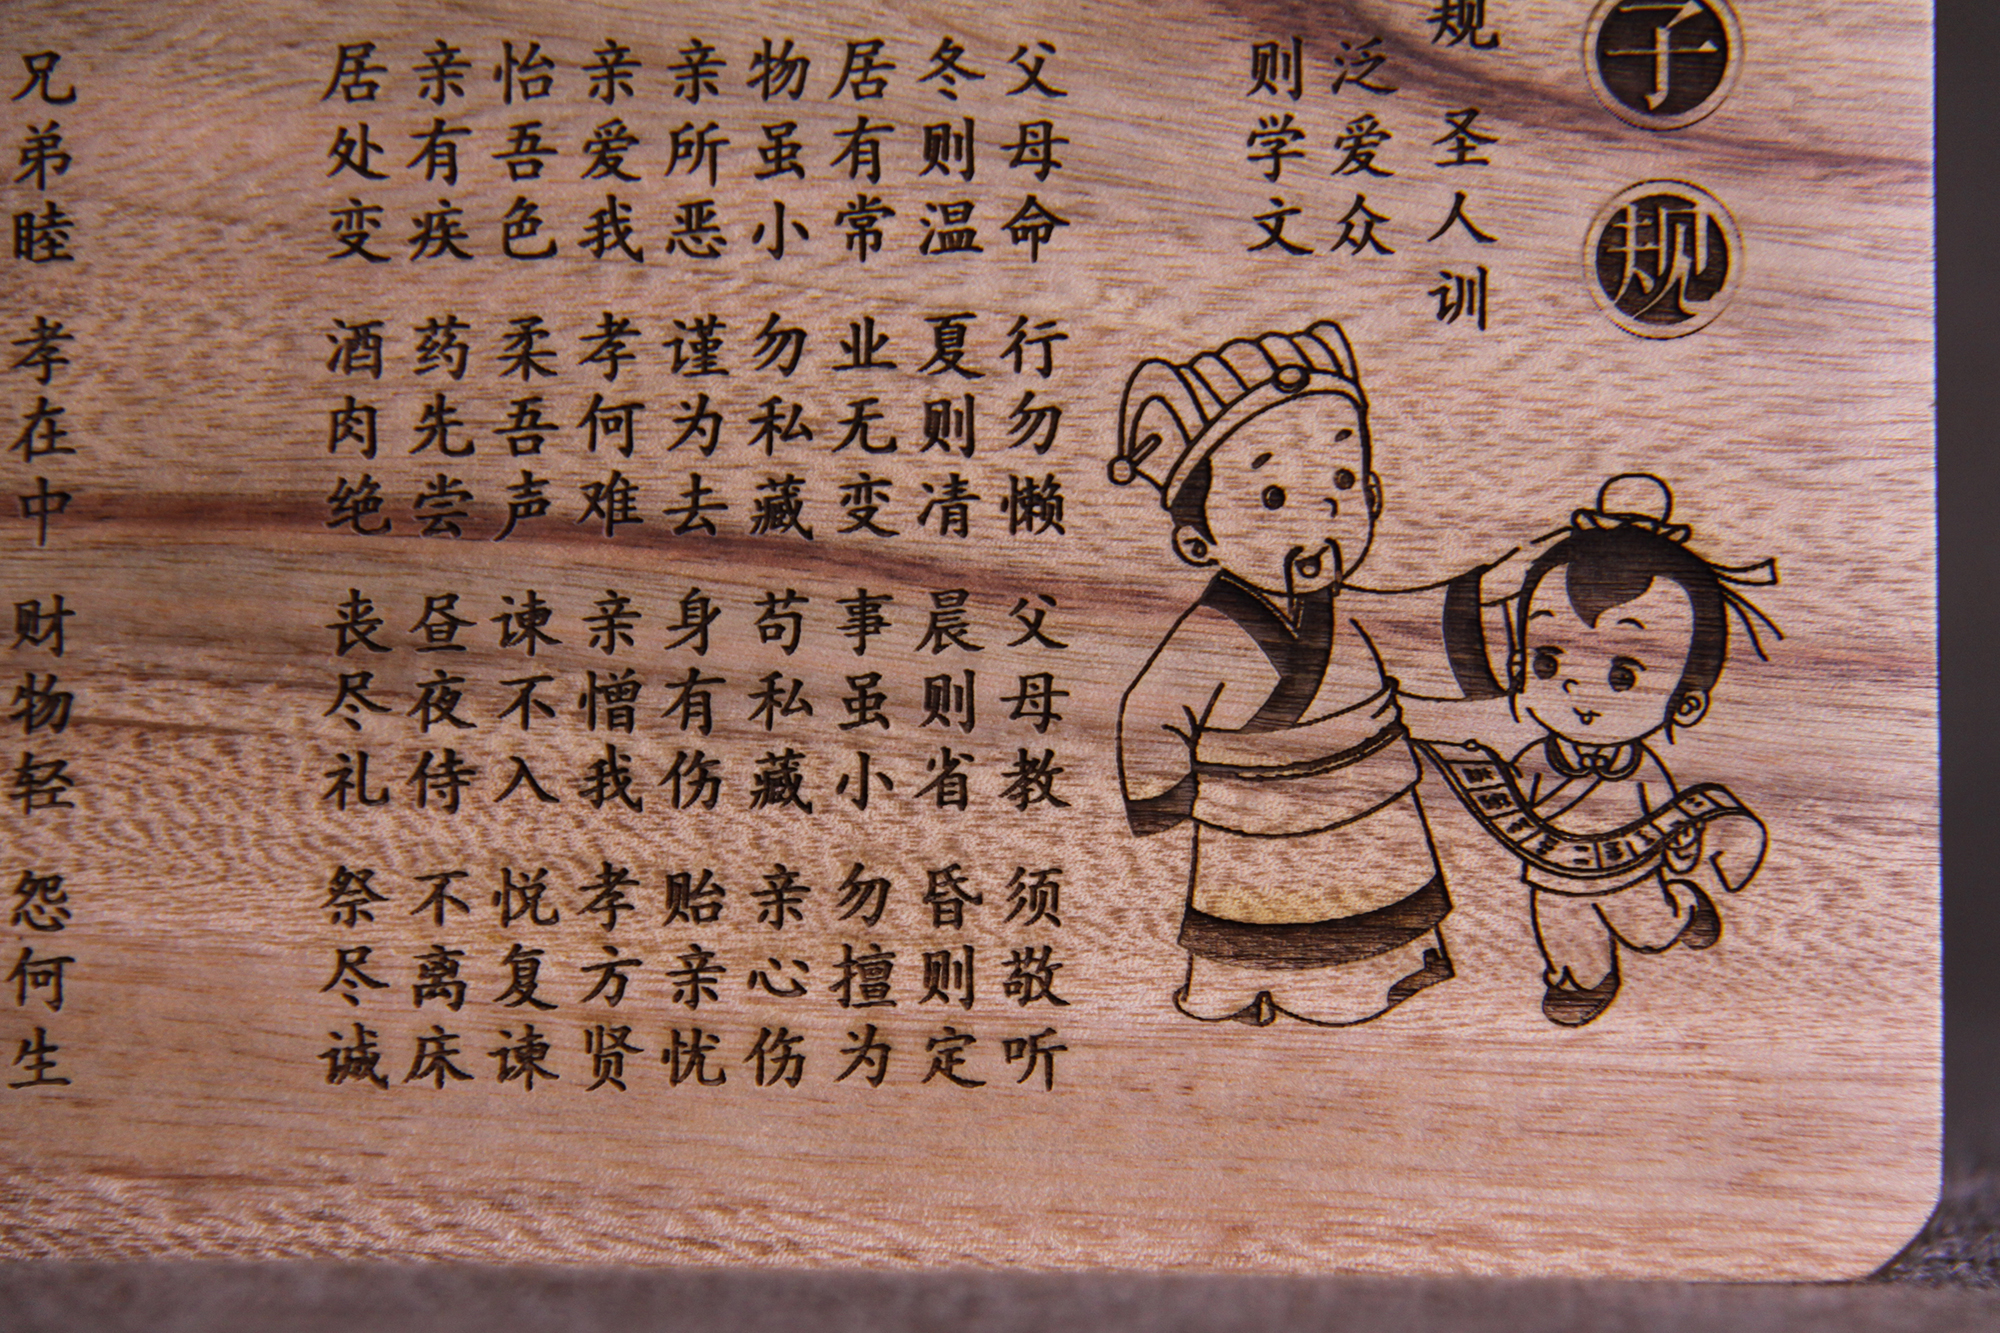 子规
规 圣人训
泛爱众
则学文
父母命 行勿懒 父母教 须敬听
冬则温 夏则清 晨则省 昏则定
居有常 业无变 事虽小 勿擅为
物虽小 勿私藏 苟私藏 亲心伤
亲所恶 谨为去 身有伤 贻亲忧
亲爱我 孝何难 亲憎我 孝方贤
怡吾色 柔吾声 谏不入 悦复谏
亲有疾 药先尝 昼夜侍 不离床
居处变 酒肉绝 丧尽礼 祭尽诚
兄弟睦 孝在中 财物轻 怨何生